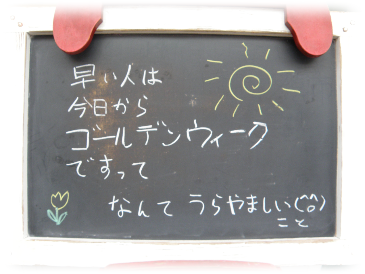 早い人は
今日から
ゴールデンウィーク
ですって
なんて うらやましい(^o^)
こと